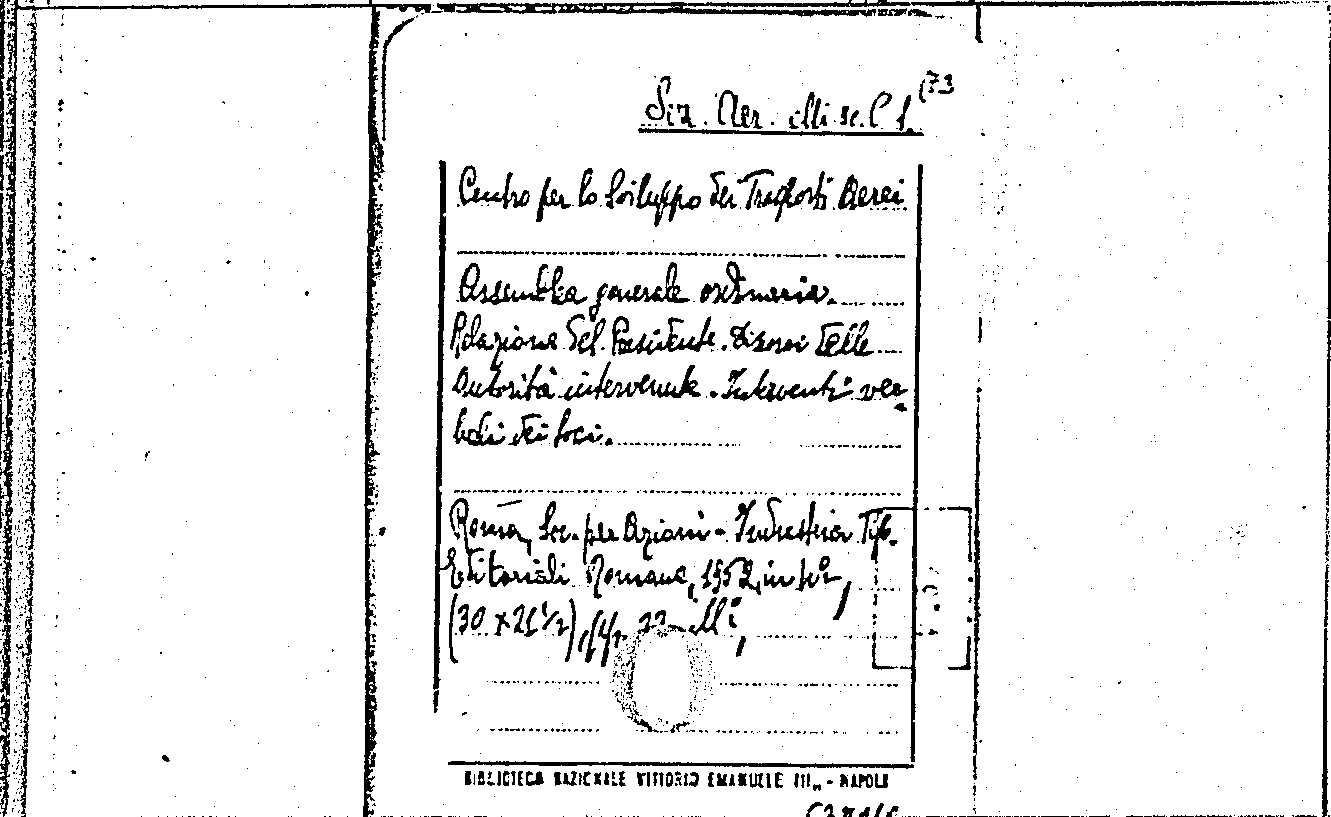 Sez. Aer. Misc. C 1. (73
Centro per lo Sviluppo dei Trasporti Aerei
Assemblea generale ordinaria.
Relazione del Presidente. Discorsi delle
Autorità intervenute. Interventi ver-
bali dei soci.
Roma, Soc. per Azioni - Industria Tip.
Editoriali Romane, 1952, in 4º,
(30 x 21 ½), pp. 22
BIBLIOTECA NAZIONALE VITTORIO EMANUELE III„ - NAPOLI